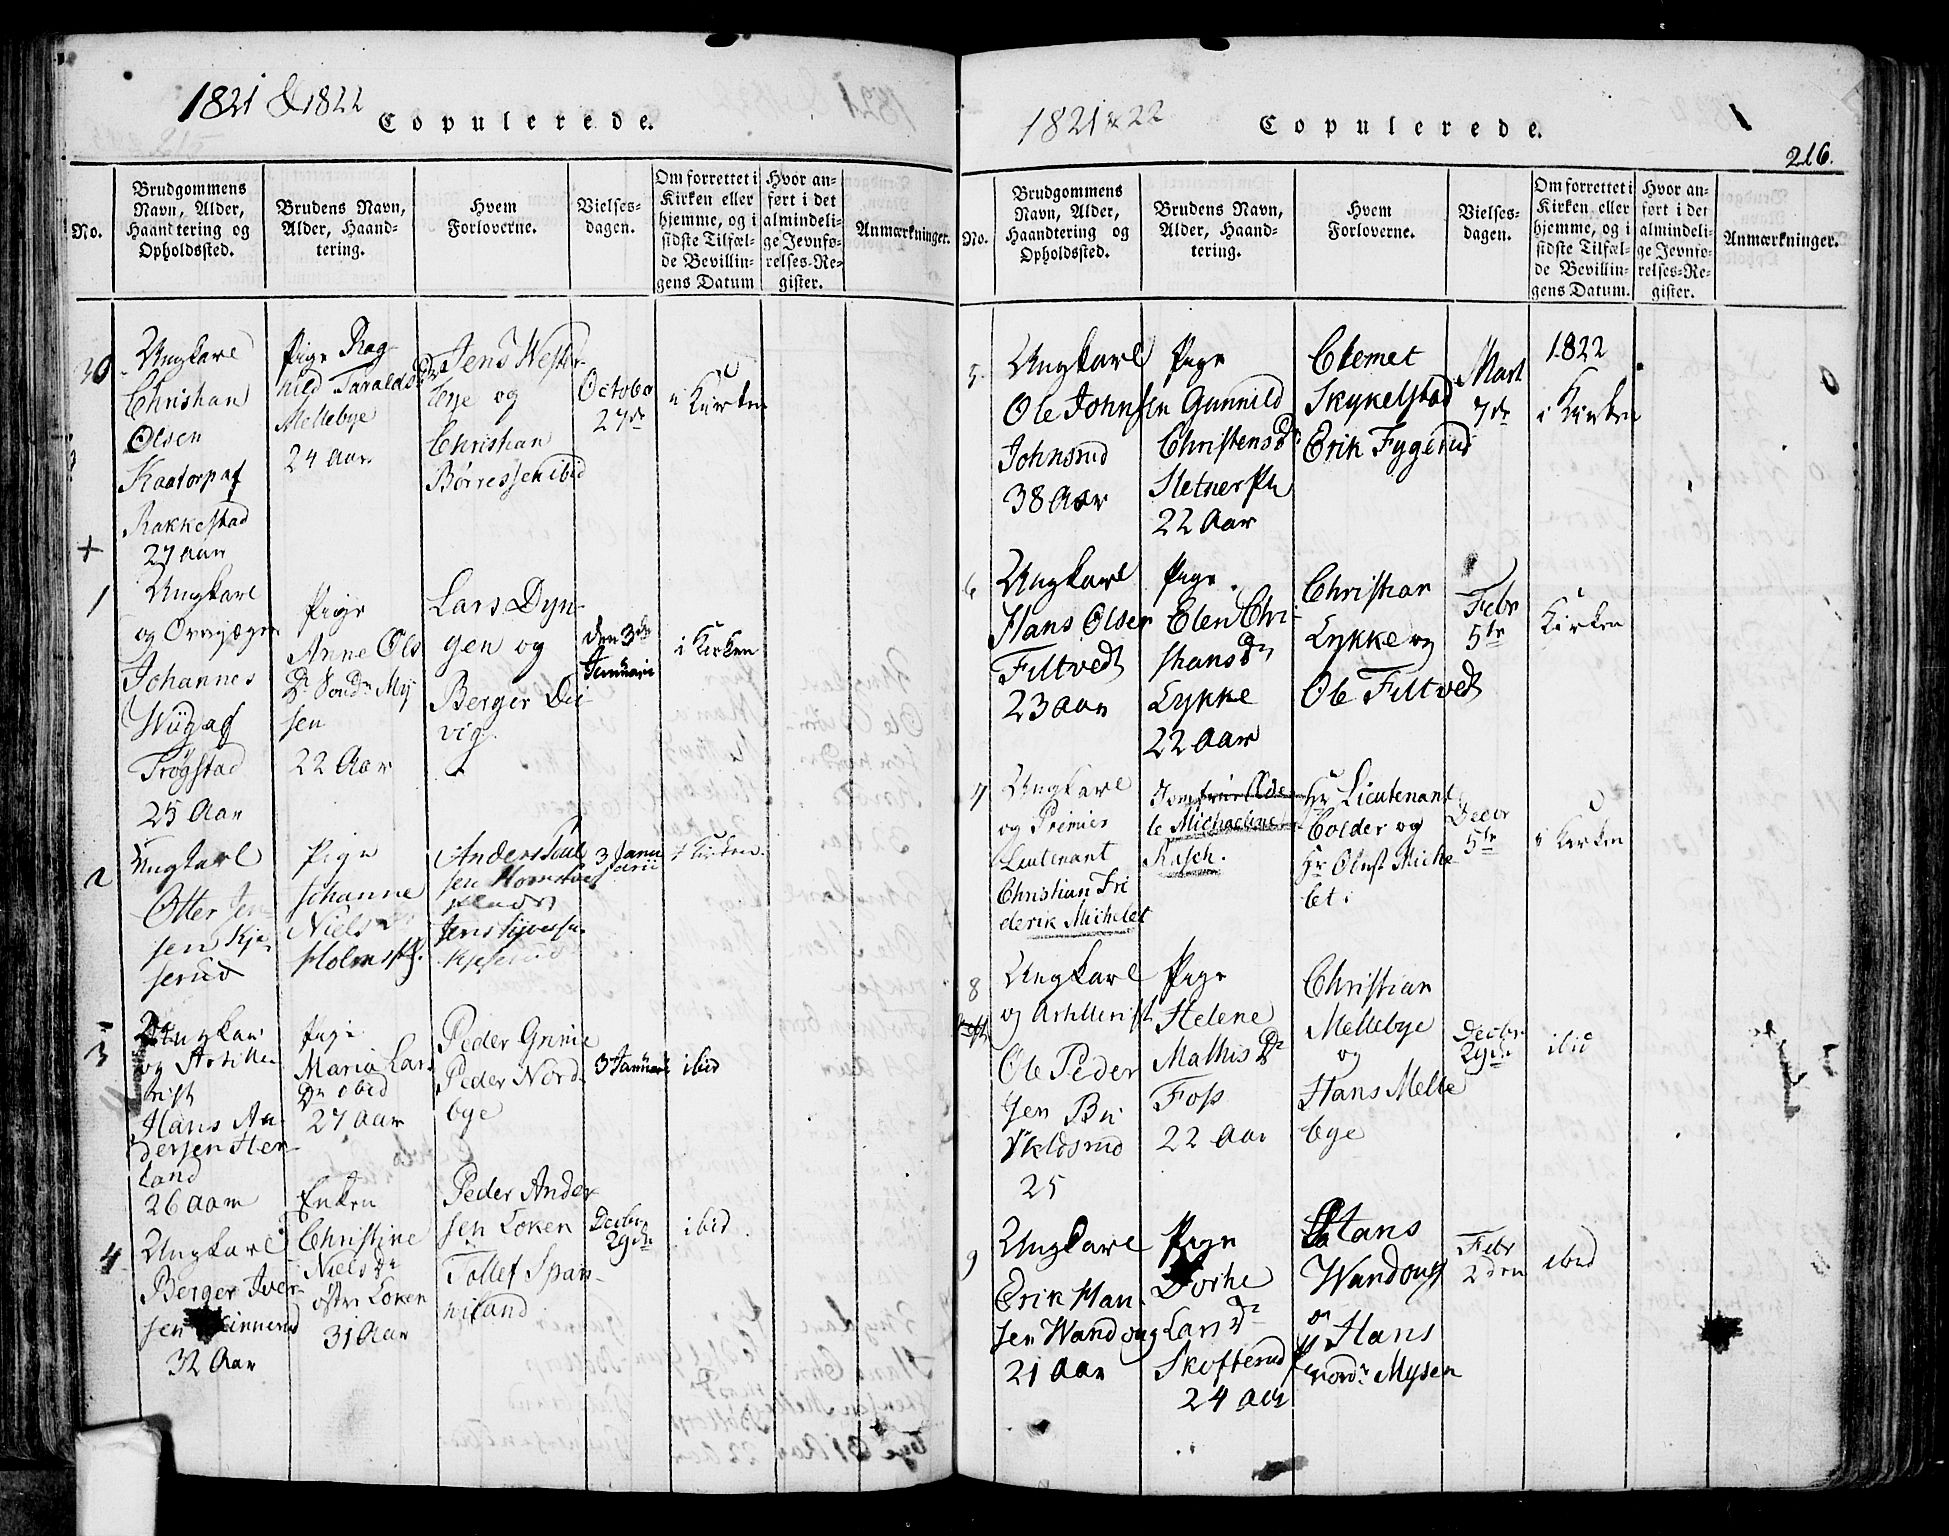 1821 & 1822
Copulerede.
No.
Brudgommens
Navn, Alder,
Haandtering og
Opholdssted.
Brudens Navn,
Alder, Haand-
tering.
Hvem
Forloverne.
Vielses-
dagen.
Om forrettet i
Kirken eller
hjemme, og i
sidste Tilfæl-
de Bevillin-
gens Datum
Hvor an-
ført i det
almindeli-
ge Jevnfø-
relses-Re-
gister.
Anmærkninger.
Ungkarl
Christian
Olsen
Kaatorp af
Rakkestad
27 Aar
Pige Rag-
nild Taralds Dr
Mellebye
24 Aar
Jens Wester-
bye og
Christian
Børressen ibid
Octobr
27de
i Kirken
1
Ungkarl
Johannes
Wiig af
Trøgstad
25 Aar
Pige
Anne Ols
Dr Sondr My
sen
22 Aar
Lars Dyn-
gen og
Berger Dil-
vig
den 3de
Januari
i Kirken
2
Ungkarl
Otter Jen-
sen Kje-
serud
Pige
Johanne
Niels Dr
Anders Poul
sen
3 Janu
arii
i Kirken
3
Ungkarl
og Artille-
rist
Hans An-
dersen Her-
land
26 Aar
Pige
Maria Lars
Dr ibid
27 Aar
Peder Grime
Peder Nord-
bye
3 Januari
ibid
4
Ungkarl
Berger Iver-
sen
32 Aar
Enken
Christine
Niels Dr
østre Løken
31 Aar
Peder Ander
sen Løken
Tollef Span-
niland
Decbr
29de
ibid
1821 & 22
Copulerede.
216.
No.
Brudgommens
Navn, Alder,
Haandtering og
Opholdssted.
Brudens Navn,
Alder, Haand-
tering.
Hvem
Forloverne.
Vielses-
dagen.
Om forrettet i
Kirken eller
hjemme, og i
sidste Tilfæl-
de Bevillin-
gens Datum.
Hvor an-
ført i det
almindeli-
ge Jevnfø-
relses-Re-
gister.
Anmærkninger.
5
Ungkarl
Ole Johnsen
Johnsrud
38 Aar
Pige
Gunnild
Christens Dr
22 Aar
Clemet
Skykelstad
Erik Fygerud
Mart
7de
1822
i Kirken
6
Ungkarl
Hans Olsen
Filtvedt
23 Aar
Pige
Elen Chri-
stians Dr
Lykke
22 Aar
Christian
Lykke og
Ole Filtvedt
Febr
5te
Kirken
7
Ungkarl
og Premier
Lieutenant
Christian Fri
derik Michelet
Jomfrue Ade
le Michaeline
Rasch.
Hr Lieutenant
Colder og
Hr Obrst Miche
let
Decbr
5te
i Kirken
8
Ungkarl
og Artillerist
Ole Peder
sen
25
Pige
Helene
Mathis Dr
Foss
22 Aar
Christian
Mellebye
og
Hans Melle
bye
Decbr
29de
ibid
9
Ungkarl
Erik Han-
sen Wandoug
21 Aar
Pige
Dorthe
Lars Dr
Skofterud
24 Aar
Hans
Wandoug
og
Hans
nordr Mysen
Febr
2den
ibid